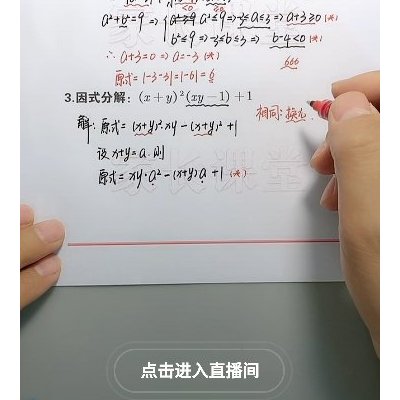 a²+b²=9 ⇒ { a²≤9 ⇒ -3≤a≤3 ⇒ a+3≥0 (*)
b²≤9 ⇒ -3≤b≤3 ⇒ b-4<0 (*)
∴ a+3=0 ⇒ a=-3 (*)
666
原式=|-3-3|=|-6|=6
3.因式分解：(x+y)²(xy−1)+1
相同:换元.
解:原式=(x+y)²·xy-(x+y)²+1
设x+y=a.则
原式=xy·a²-(x+y)a+1 (*)
家长课堂
点击进入直播间